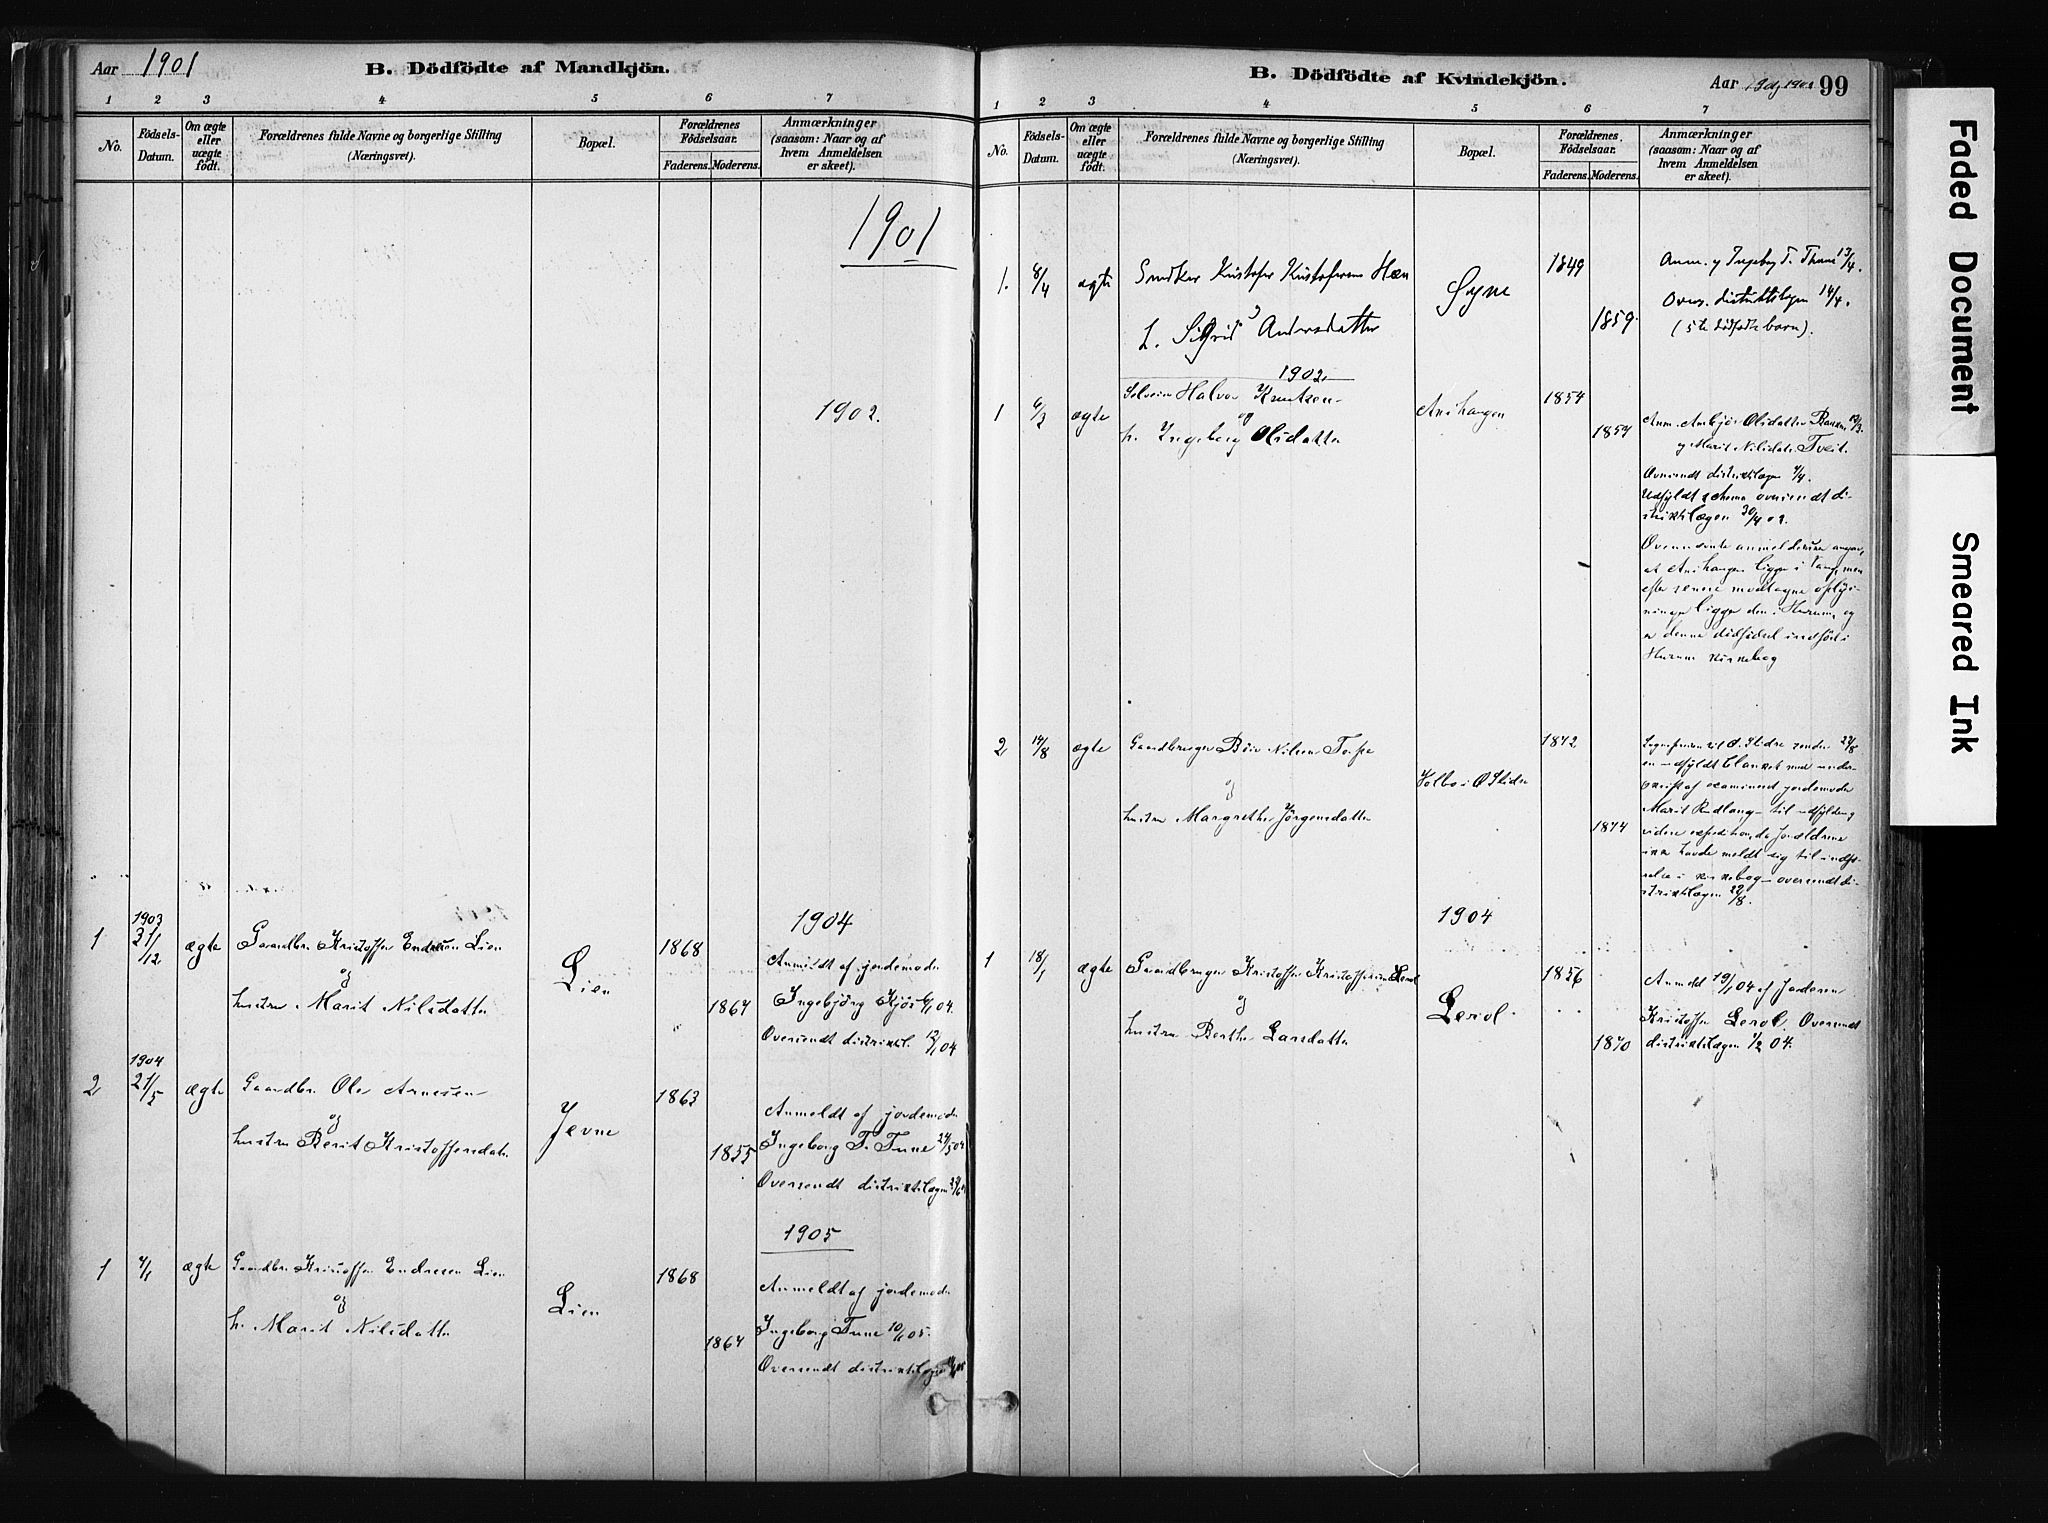 Aar 1901
B. Dödfödte af Mandkjön.
1 2 3 4 5 6 7
No.
Födsels-Datum.
Om ægte eller uægte födt.
Forældrenes fulde Navne og borgerlige Stilling
(Næringsvei).
Bopæl.
Forældrenes Födselsaar.
Faderens. Moderens.
Anmærkninger
(saasom: Naar og af
hvem Anmeldelsen
er skeet).
1901
1902.
1904
1 1903 31/12 ægte Gaardbr. Kristoffer Endresen Lien
og
hustru Marit Nilsdatter
Lien
1868
1864
Anmeldt af jordemoder
Ingebjörg Kjös 6/1 04.
Oversendt distriktsl. 12/1 04
2 1904 21/5 ægte Gaardbr. Ole Arnesen
og
hustru Berit Kristoffersdatr
Jevne
1863
1855
Anmeldt af jordemoder
Ingeborg T. Tune 24/5 04
Oversendt distriktslægen
1905
1 4/1 ægte Gaardbr. Kristoffer Endresen Lien
og
h. Marit Nilsdatter
Lien
1868
1864
Anmeldt af jordemoder
Ingeborg Tune 10/1 05.
Oversendt distriktslægen
B. Dödfödte af Kvindekjön.
Aar 1901, 1902 99
1 2 3 4 5 6 7
No.
Födsels-Datum.
Om ægte eller uægte födt.
Forældrenes fulde Navne og borgerlige Stilling
(Næringsvei).
Bopæl.
Forældrenes Födselsaar.
Faderens. Moderens.
Anmærkninger
(saasom: Naar og af
hvem Anmeldelsen
er skeet).
1. 8/4 ægte Snedker Kristofer Kristofersen Hæn
og
h. Sigrid Andersdatter
Øyne
1849
1859.
Anm. af Ingeborg T. Thune 13/4.
Overs. distriktslægen 14/4.
(5te dödfödte barn).
1902
1 6/3 ægte Selveier Halvor Knutsen
og
h. Ingeborg Olsdatter
Anihangen
1854
1857
Anm. Ambjör Olsdatter 12/3.
og Marit Nilsdatr Tveit.
Oversendt distriktslægen 4/4.
Udfyldt schema oversendt di-
striktslægen 30/4 02.
Ovennevnte anmeldelse angav,
at Anihangen ligger i Vang, men
efter senere modtagne oplys-
ninger ligger den i Hurum, og
er denne dödfödsel indfört i
Hurum kirkebog
2 14/8 ægte Gaardbruger Nilsen
og
hustru Margrethe Jörgensdatter
Volbu i Ø Slidre
1842
1874
Sognepresten til Ø. Slidre sender 27/8
en udfyldt blanket med under-
skrift af examineret jordemoder
Marit til udfyldning
videre expedition, da forældrene
ikke havde meldt sig til indfö-
relse i kirkebog oversendt di-
striktslægen 29/8.
1904
1 18/1 ægte Gaardbruger Kristoffer Kristoffersen Lerol
og
hustru Berthe Larsdatter
Lerol
1856
1870
Anmeld 19/1 04 af Faderen
Kristoffer Lerol. Oversendt
distriktslægen 1/2 04.
Faded Document
Smeared Ink